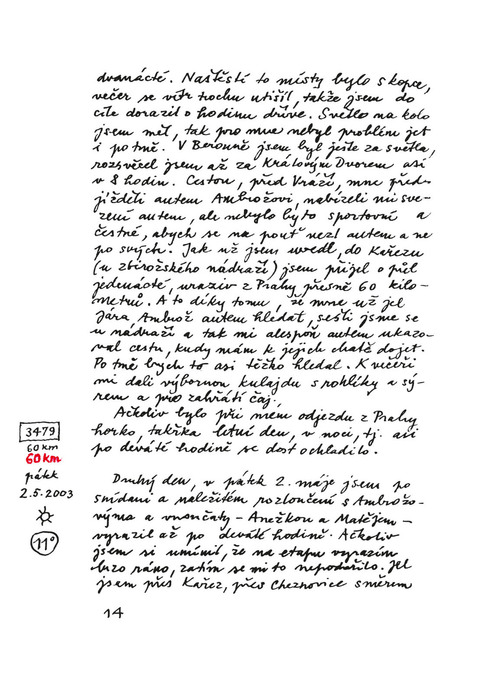 dvanácté. Naštěstí to místy bylo s kopce,
večer se vítr trochu utišil, takže jsem do
cíle dorazil o hodinu dříve. Světlo na kolo
jsem měl, tak pro mne nebyl problém jet
i po tmě. V Berouně jsem byl ještě za světla,
rozsvěcel jsem až za Královým Dvorem asi
v 8 hodin. Cestou, před Vráží, mne před-
jížděli autem Ambrožovi, nabízeli mi sve-
zení autem, ale nebylo by to sportovní a
čestné, abych se na pouť vezl autem a ne
po svých. Jak už jsem uvedl, do Kařezu
(u zbirožského nádraží) jsem přijel o půl
jedenácté, uraziv z Prahy přesně 60 kilo-
metrů. A to díky tomu, že mne už jel
Jára Ambrož autem hledat, sešli jsme se
u nádraží a tak mi alespoň autem ukazo-
val cestu, kudy mám k jejich chatě dojet.
Po tmě bych to asi těžko hledal. K večeři
mi dali výbornou kulajdu s rohlíky a sý-
rem a pro zahřátí čaj.
Ačkoliv bylo při mém odjezdu z Prahy
horko, takřka letní den, v noci, tj. asi
po deváté hodině se dost ochladilo.
3479
60 km
60 km
pátek
2.5.2003
11°
Druhý den, v pátek 2. máje jsem po
snídani a náležitém rozloučení s Ambrožo-
výma a vnoučaty - Anežkou a Matějem -
vyrazil až po deváté hodině. Ačkoliv
jsem si umínil, že na etapu vyrazím
brzo ráno, zatím se mi to nepodařilo. Jel
jsem přes Kařez, přes Cheznovice směrem
14